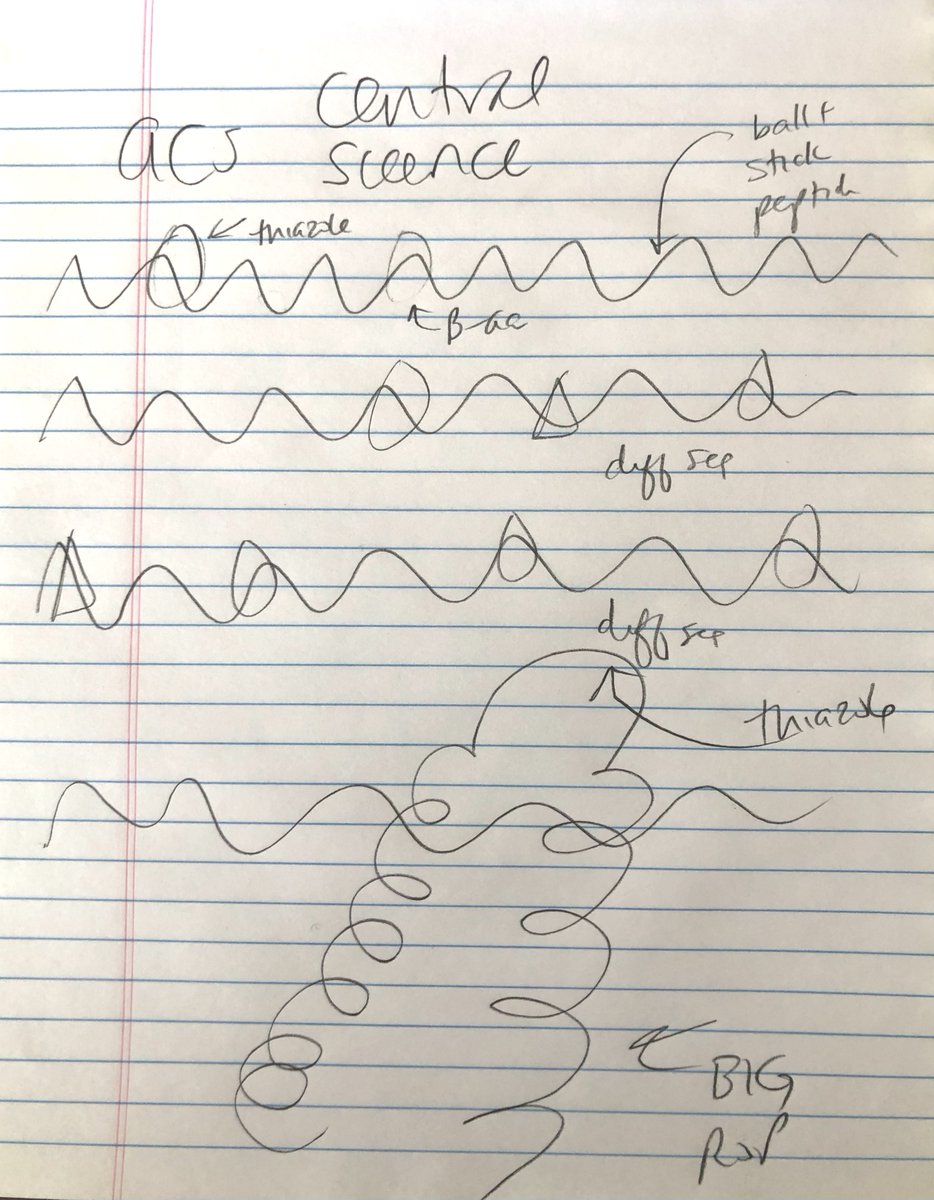 Central
ACS Science
ball +
stick
peptide
thiazole
β-aa
diff seq
diff seq
thiazole
BIG